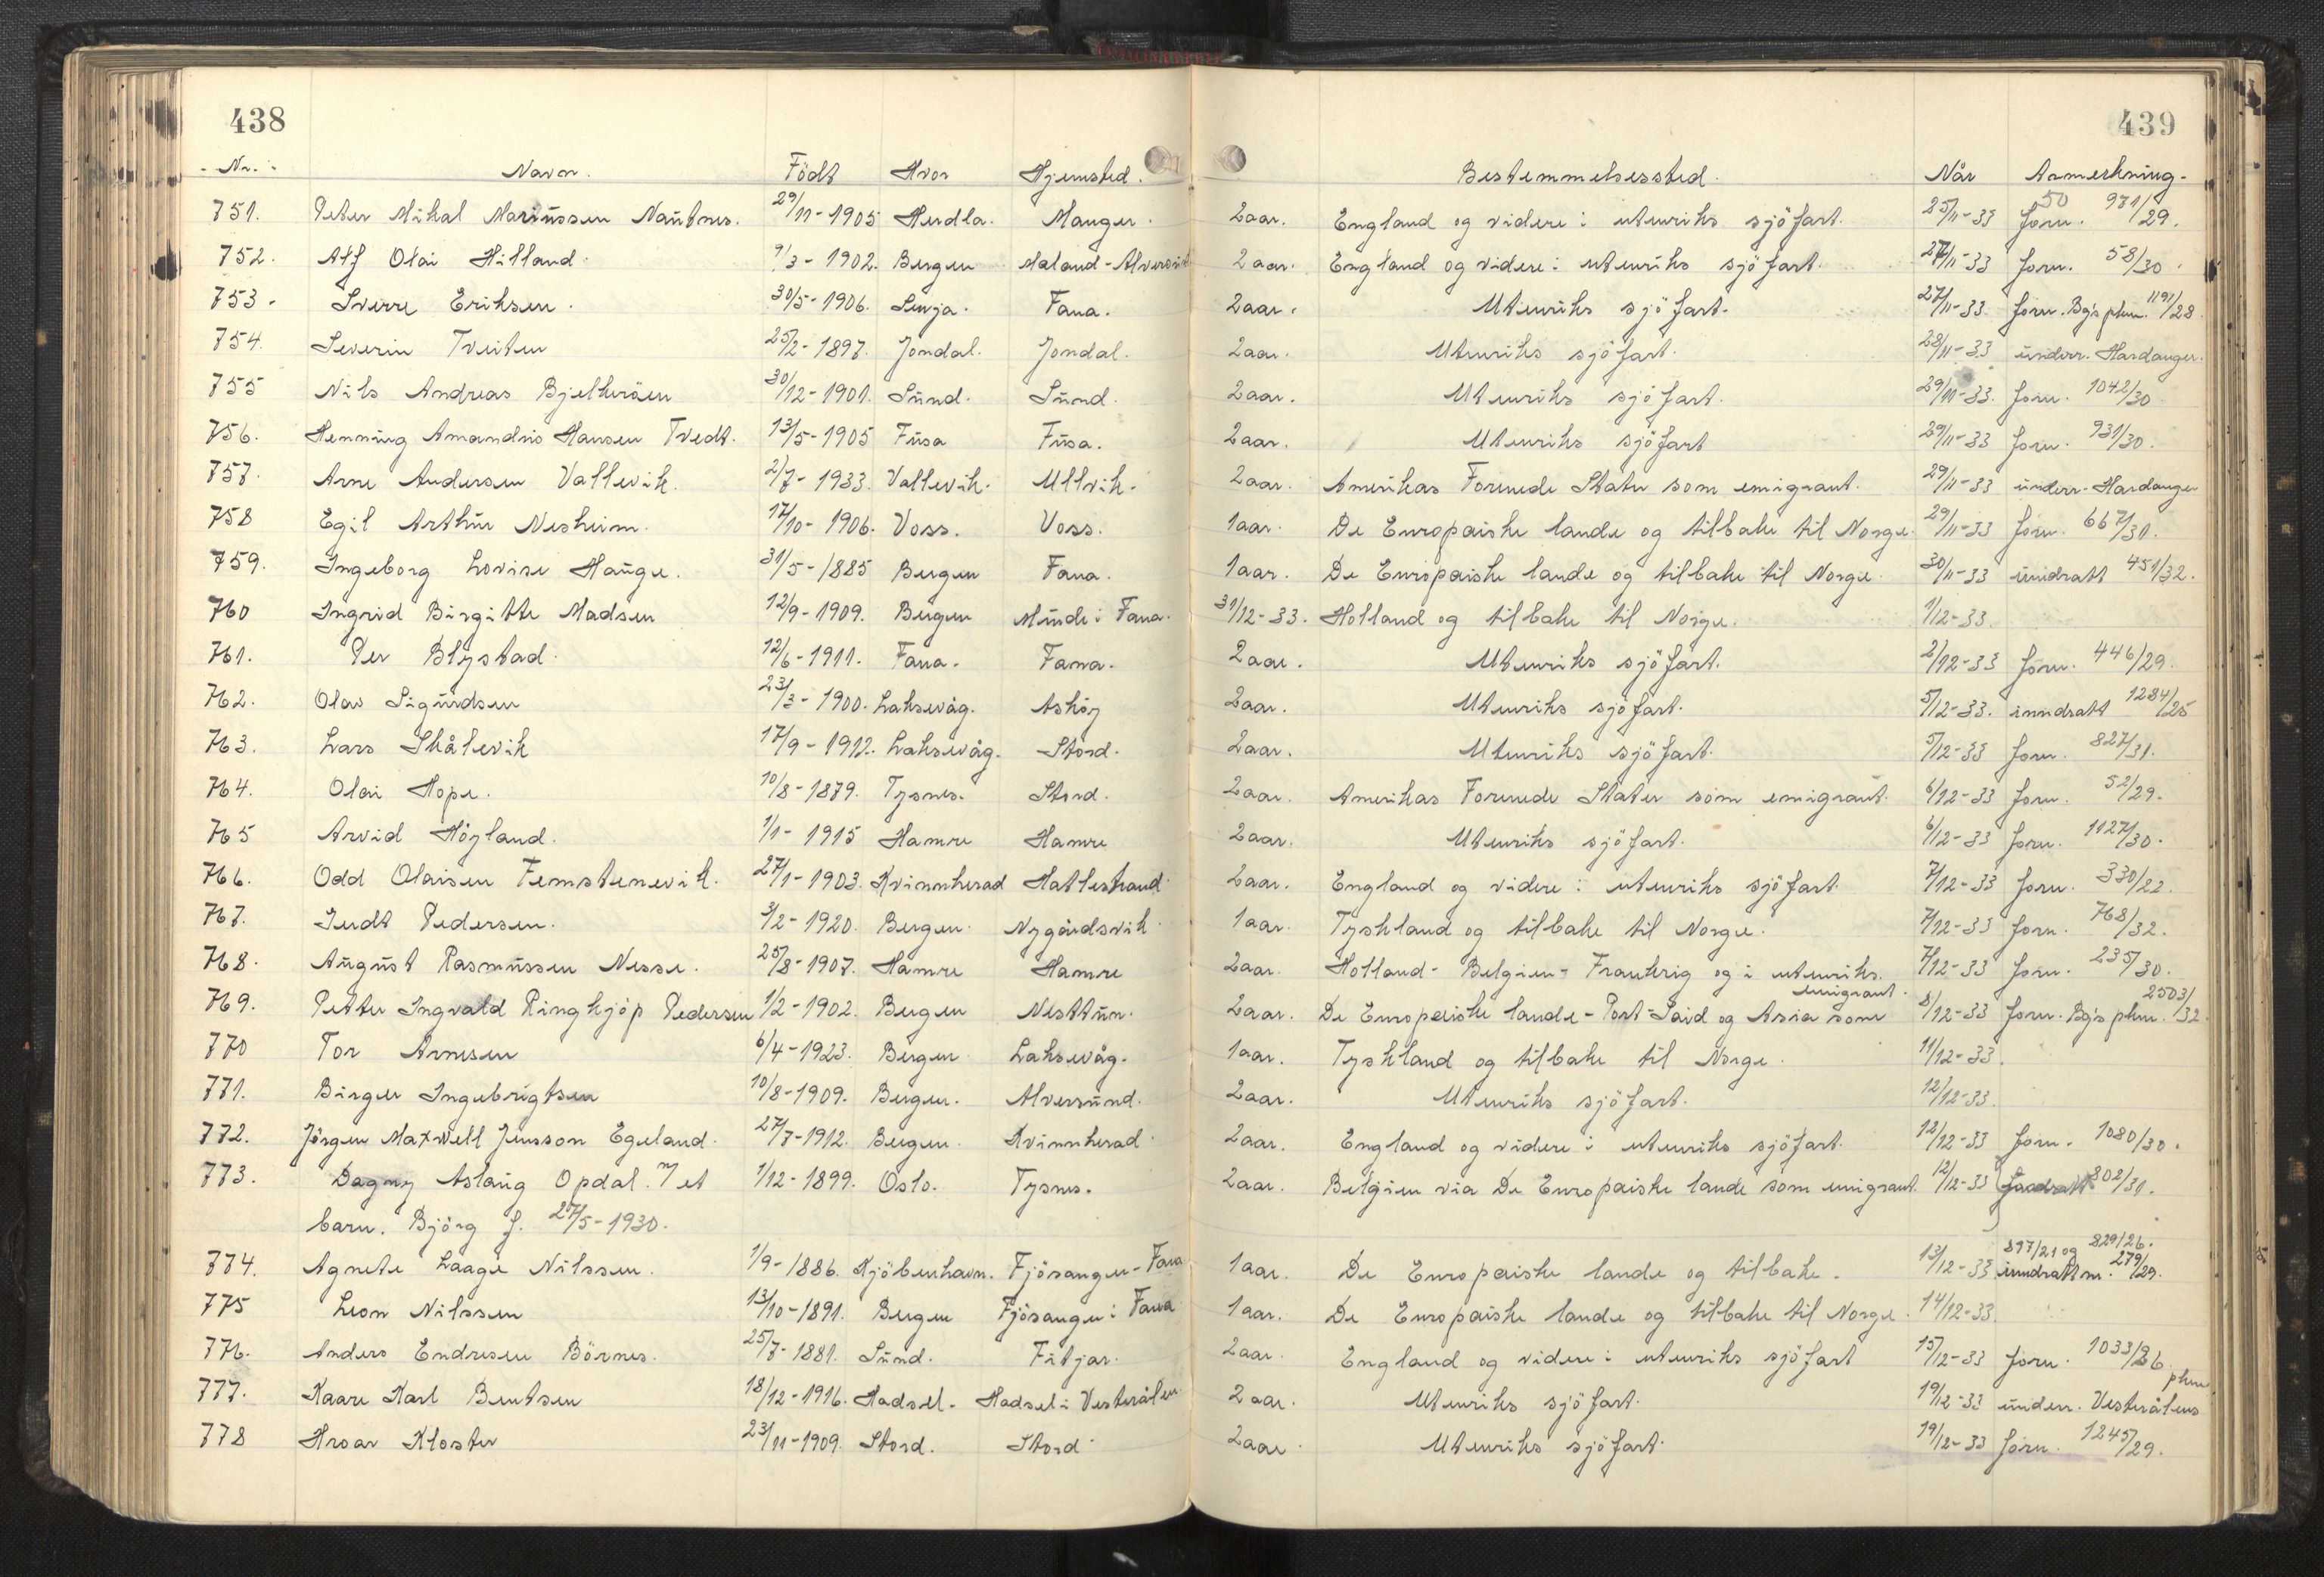 438
Nr. Navn. Födt Hvor Hjemsted.
751. Peter Mikal Mariussen Nautnes. 29/11-1905 Herdla. Manger.
752. Alf Olai Hilland. 9/3-1902. Bergen Maland-Alversund
753. Sverre Eriksen. 30/5-1906. Senja. Fana.
754. Severin Tveiten 25/2-1897. Jondal. Jondal.
755 Nils Andreas Bjelkeröen 30/12-1901. Sund. Sund.
756. Henning Amandus Hansen Tvedt. 13/5-1905 Fusa Fusa.
757. Arne Andersen Vallevik. 2/7-1933. Vallevik. Ullvik.
758 Egil Arthur Nesheim. 17/10-1906. Voss. Voss.
759. Ingeborg Lovise Hauge. 31/5-1885 Bergen Fana.
760 Ingrid Birgitte Madsen 12/9-1909. Bergen Minde i Fana.
761. Per Blystad. 12/6-1911. Fana. Fana.
762. Olav Sigurdsen 23/3-1900. Laksevåg. Asköy
763. Lars Skålevik 17/9-1912. Laksevåg. Stord.
764. Olai Hope. 10/8-1879. Tysnes. Stord.
765 Arvid Höyland. 1/1-1915 Hamre Hamre
766. Odd Olaisen Femstenevik. 27/1-1903. Kvinnherad Hatlestrand
767. Gudt Pedersen. 3/2-1920. Bergen. Nygårdsvik
768. August Rasmussen Nesse. 25/8-1907. Hamre Hamre
769. Petter Ingvald Ringkjöp Pedersen 1/2-1902. Bergen Nesttun.
770 Tor Arnesen 6/4-1923. Bergen Laksevåg.
771. Birger Ingebrigtsen 10/8-1909. Bergen. Alversund.
772. Jörgen Maxwell Jensson Egeland. 27/7-1912. Bergen. Kvinnherad
773. Dagny Aslaug Opdal. m/ et 1/12-1899. Oslo. Tysnes.
barn. Björg f. 27/5-1930.
774. Agnete Laage Nilssen. 1/9-1886. Kjöbenhavn. Fjösanger-Fana
775 Leon Nilssen 13/10-1891. Bergen Fjösanger i Fana
776. Anders Endresen Börnes. 25/7-1881. Sund. Fitjar.
777. Kaare Karl Bentsen 18/12-1916. Hadsel. Hadsel i Vesterålen
778 Hroar Kloster 23/11-1909. Stord. Stord
439
Bestemmelsessted. Når Anmerkning.
2 aar. England og videre i utenriks sjöfart. 25/11-33 forn. 50 971/29.
2 aar. England og videre i utenriks sjöfart. 27/11-33 forn. 58/30.
2 aar. Utenriks sjöfart. 27/11-33. forn. Bg's pkm. 1191/28.
2 aar. Utenriks sjöfart. 28/11-33 underr. Hardanger.
2 aar. Utenriks sjöfart. 29/11-33. forn. 1042/30
2 aar. Utenriks sjöfart 29/11-33 forn. 931/30.
2 aar. Amerikas Forenede Stater som emigrant. 29/11-33 underr. Hardanger
1 aar. De Europæiske lande og tilbake til Norge. 29/11-33 forn. 667/31.
1 aar. De Europæiske lande og tilbake til Norge. 30/11-33 inndratt 451/32.
31/12-33. Holland og tilbake til Norge. 1/12-33.
2 aar. Utenriks sjöfart. 2/12-33 forn. 446/29.
2 aar. Utenriks sjöfart. 5/12-33. inndratt 1284/25
2 aar. Utenriks sjöfart. 5/12-33 forn. 827/31.
2 aar. Amerikas Forenede Stater som emigrant. 6/12-33 forn. 52/29.
2 aar. Utenriks sjöfart. 6/12-33 forn. 1127/30.
2 aar. England og videre i utenriks sjöfart. 7/12-33 forn. 330/22.
1 aar. Tyskland og tilbake til Norge. 7/12-33 forn. 768/32.
2 aar. Holland-Belgien-Frankrig og i utenriks. 7/12-33 forn. 235/30.
2 aar. De Europæiske lande-Port-Said og Asia som emigrant. 8/12-33 forn. Bg's pkm. 2503/32.
1 aar. Tyskland og tilbake til Norge. 11/12-33.
2 aar. Utenriks sjöfart. 12/12-33.
2 aar. England og videre i utenriks sjöfart. 12/12-33 forn. 1080/30.
2 aar. Belgien via De Europæiske lande som emigrant. 12/12-33 802/31.
897/21 og 829/26.
1 aar. De Europæiske lande og tilbake. 13/12-33 inndratt nr. 279/29.
1 aar. De Europæiske lande og tilbake til Norge. 14/12-33.
2 aar. England og videre i utenriks sjöfart 15/12-33 forn. 1033/26.
2 aar. Utenriks sjöfart. 19/12-33 underr. Vesterålens pkm.
2 aar. Utenriks sjöfart. 19/12-33 forn. 1245/29.